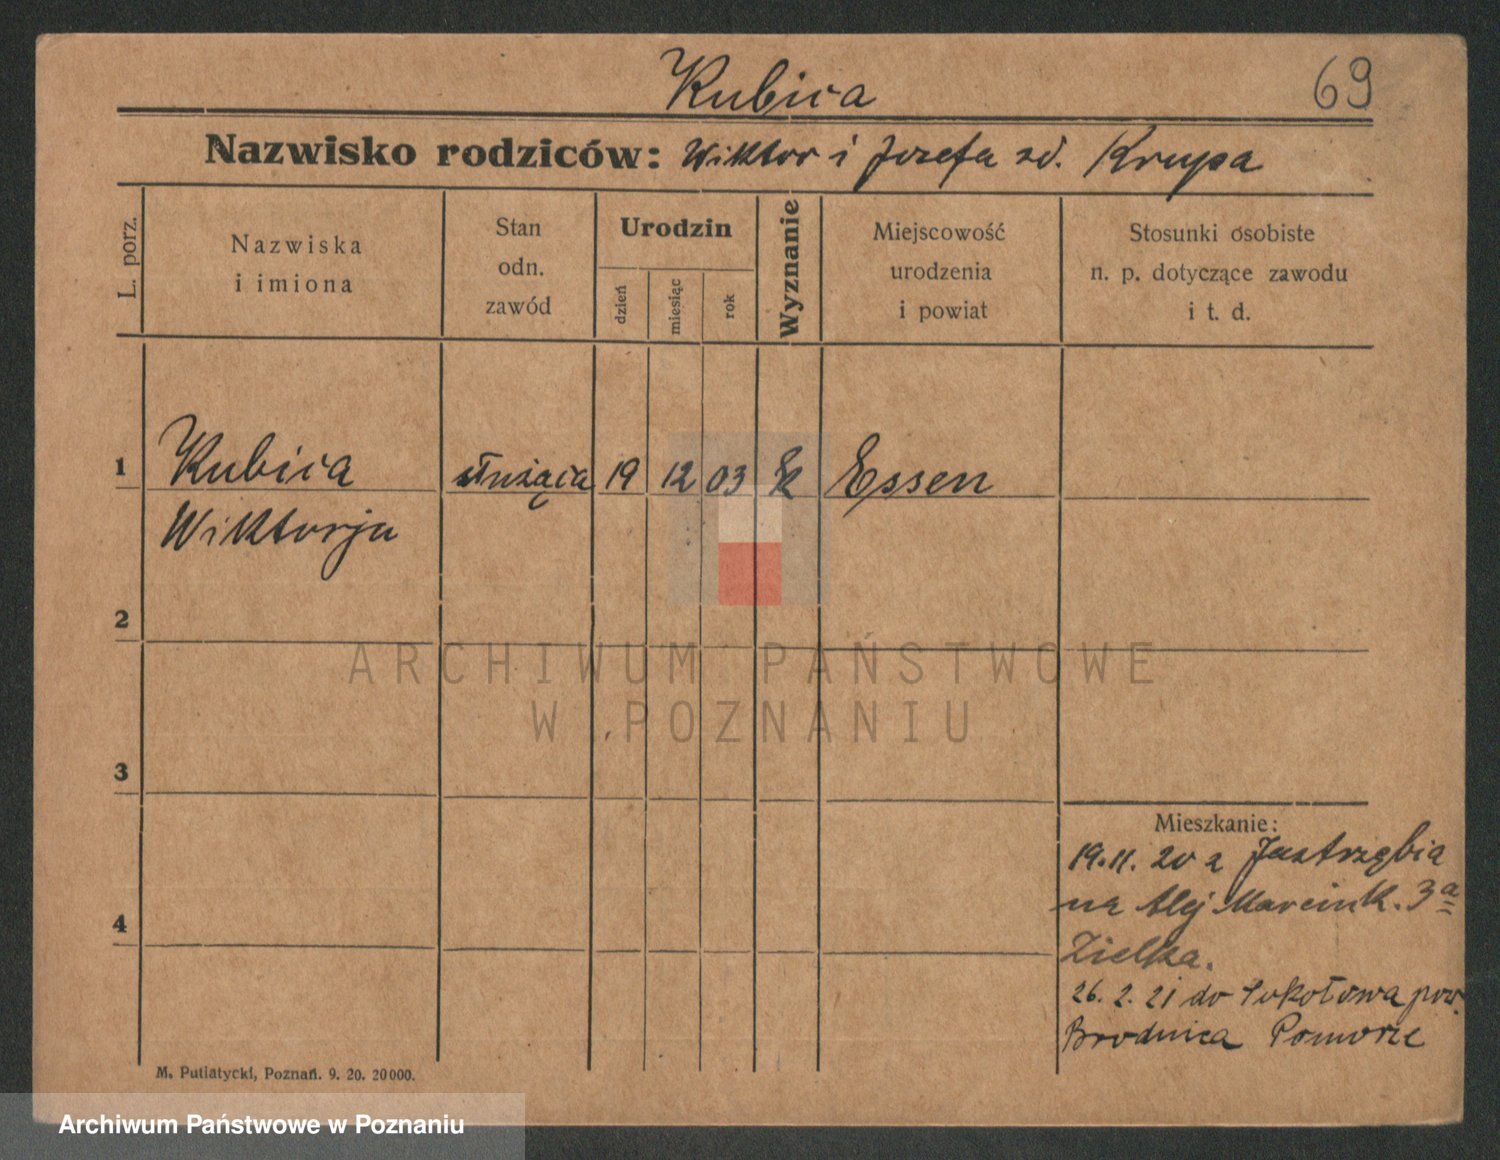 Kubica
69
Nazwisko rodziców: Wiktor i Jozefa zd. Krupa
L. porz.
Nazwiska
i imiona
Stan
odn.
zawód
Urodzin
dzień
miesiąc
rok
Wyznanie
Miejscowość
urodzenia
i powiat
Stosunki osobiste
n. p. dotyczące zawodu
i t. d.
1 Kubica służąca 19 12 03 Essen
Wiktorja
2
ARCHIWUM PAŃSTWOWE
W POZNANIU
3
Mieszkanie:
19.11.20 z Jastrzębia
4
na Alej Marcink. 3a
Zielka.
26.2.21 do Sokołowa pow.
Brodnica Pomorze
M. Putiatycki, Poznań. 9. 20. 20000.
Archiwum Państwowe w Poznaniu